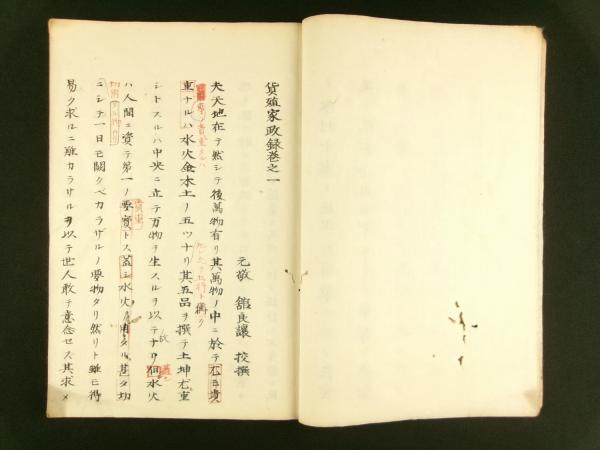 貨殖家政録巻之一
元敬 舘良讓 校撰
夫天地在テ然シテ後萬物有リ其萬物ノ中ニ於テ尤モ貴
重ナルハ水火金木土ノ五ツナリ其五品ヲ撰テ土坤尤重
シトスルハ中央ニ立テ万物ヲ生スルヲ以テナリ 水火
ハ人間ニ資テ第一ノ要寳トス蓋シ水火ノ用タル甚タ切
ニシテ一日モ闕クベカラザルノ要物タリ然リト雖モ得
易ク求ルニ難カラザルヲ以テ世人敢テ意念セズ其求メ